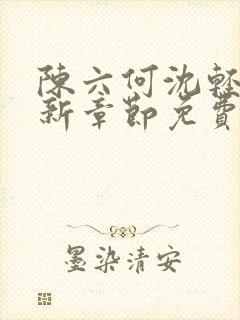 陳六何沈輕
新章節免費
墨染清安